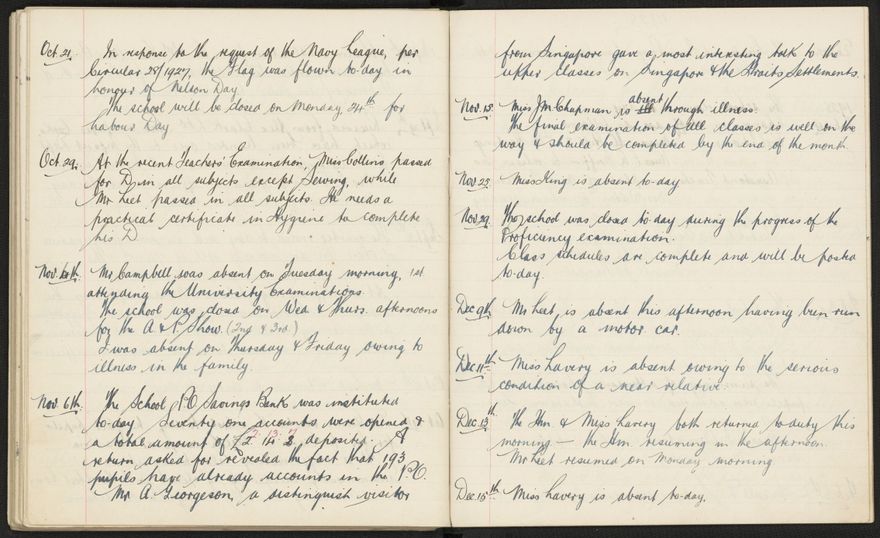 Oct. 21.
In response to the request of the Navy League, per
Circular 28/1927, the Flag was flown to-day in
honour of Nelson Day
The school will be closed on Monday, 24th for
Labour Day
Oct. 29.
At the recent Teachers' Examination, Miss Collins passed
for D in all subjects except Sewing, while
Mr Leet passed in all subjects. He needs a
practical certificate in Hygiene to complete
his D
Nov. 4th.
Mr Campbell was absent on Tuesday morning, 1st
attending the University Examinations.
The school was closed on Wed. & Thurs. afternoons
for the A & P. Show. (2nd & 3rd.)
I was absent on Thursday & Friday owing to
illness in the family.
Nov. 6th.
The School P.O. Savings Bank was instituted
to-day. Seventy one accounts were opened &
a total amount of deposited. A
return asked for revealed the fact that 193
pupils have already accounts in the P.O.
Mr A Georgeson, a distinguish visitor
from Singapore gave a most interesting talk to the
upper classes on Singapore & the Straits Settlements.
Nov. 18.
Miss J.M. Chapman is absent through illness.
The final examination of all classes is well on the
way & should be completed by the end of the month
Nov. 25.
Miss King is absent to-day
Nov. 29.
The school was closed to-day during the progress of the
Proficiency examination.
Class schedules are complete and will be posted
to-day.
Dec 9th
Mr Leet is absent this afternoon having been run
down by a motor car.
Dec 11th
Miss Lavery is absent owing to the serious
condition of a near relative.
Dec. 13th
The Hm. & Miss Lavery both returned to duty this
morning — the Hm. resuming in the afternoon.
Mr Leet resumed on Monday morning.
Dec 15th
Miss Lavery is absent to-day.